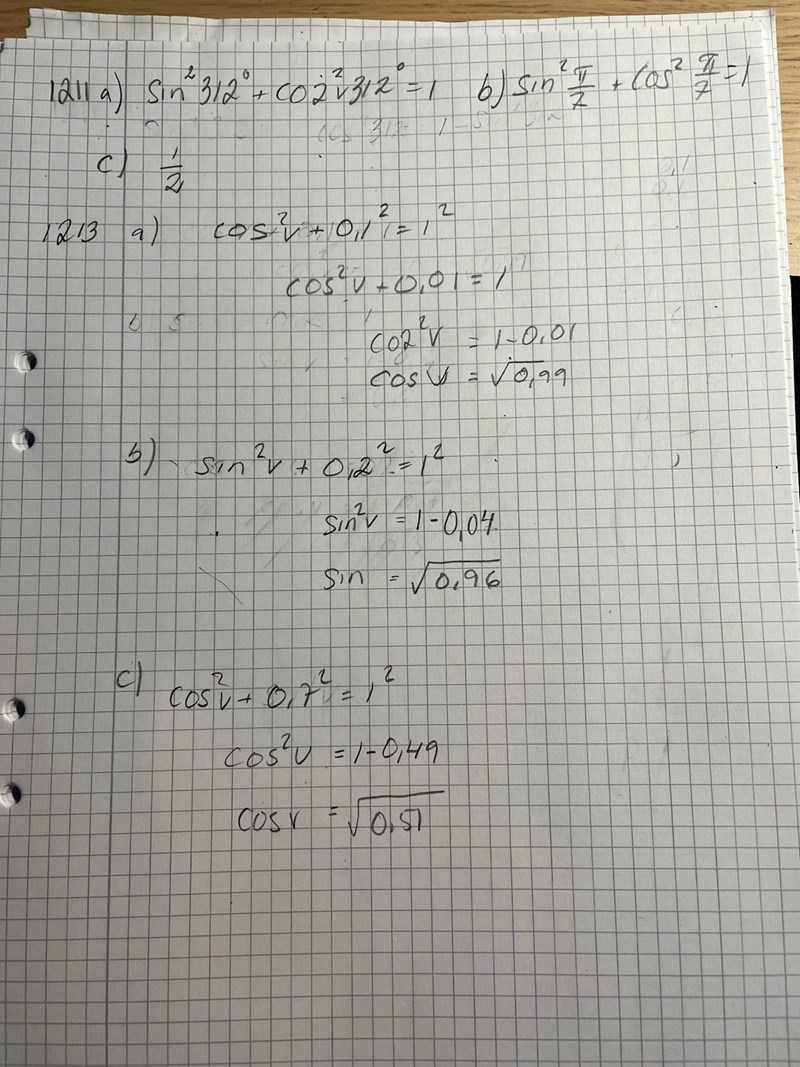 1211 a) sin²312° + co2²v312° = 1 b) sin² π/7 + cos² π/7 = 1
c) 1/2
1213 a) cos²v + 0,1² = 1²
cos²v + 0,01 = 1
co2²v = 1-0,01
cos v = √0,99
b) sin²v + 0,2² = 1²
sin²v = 1-0,04
sin = √0,96
c) cos²v + 0,7² = 1²
cos²v = 1-0,49
cos v = √0,51